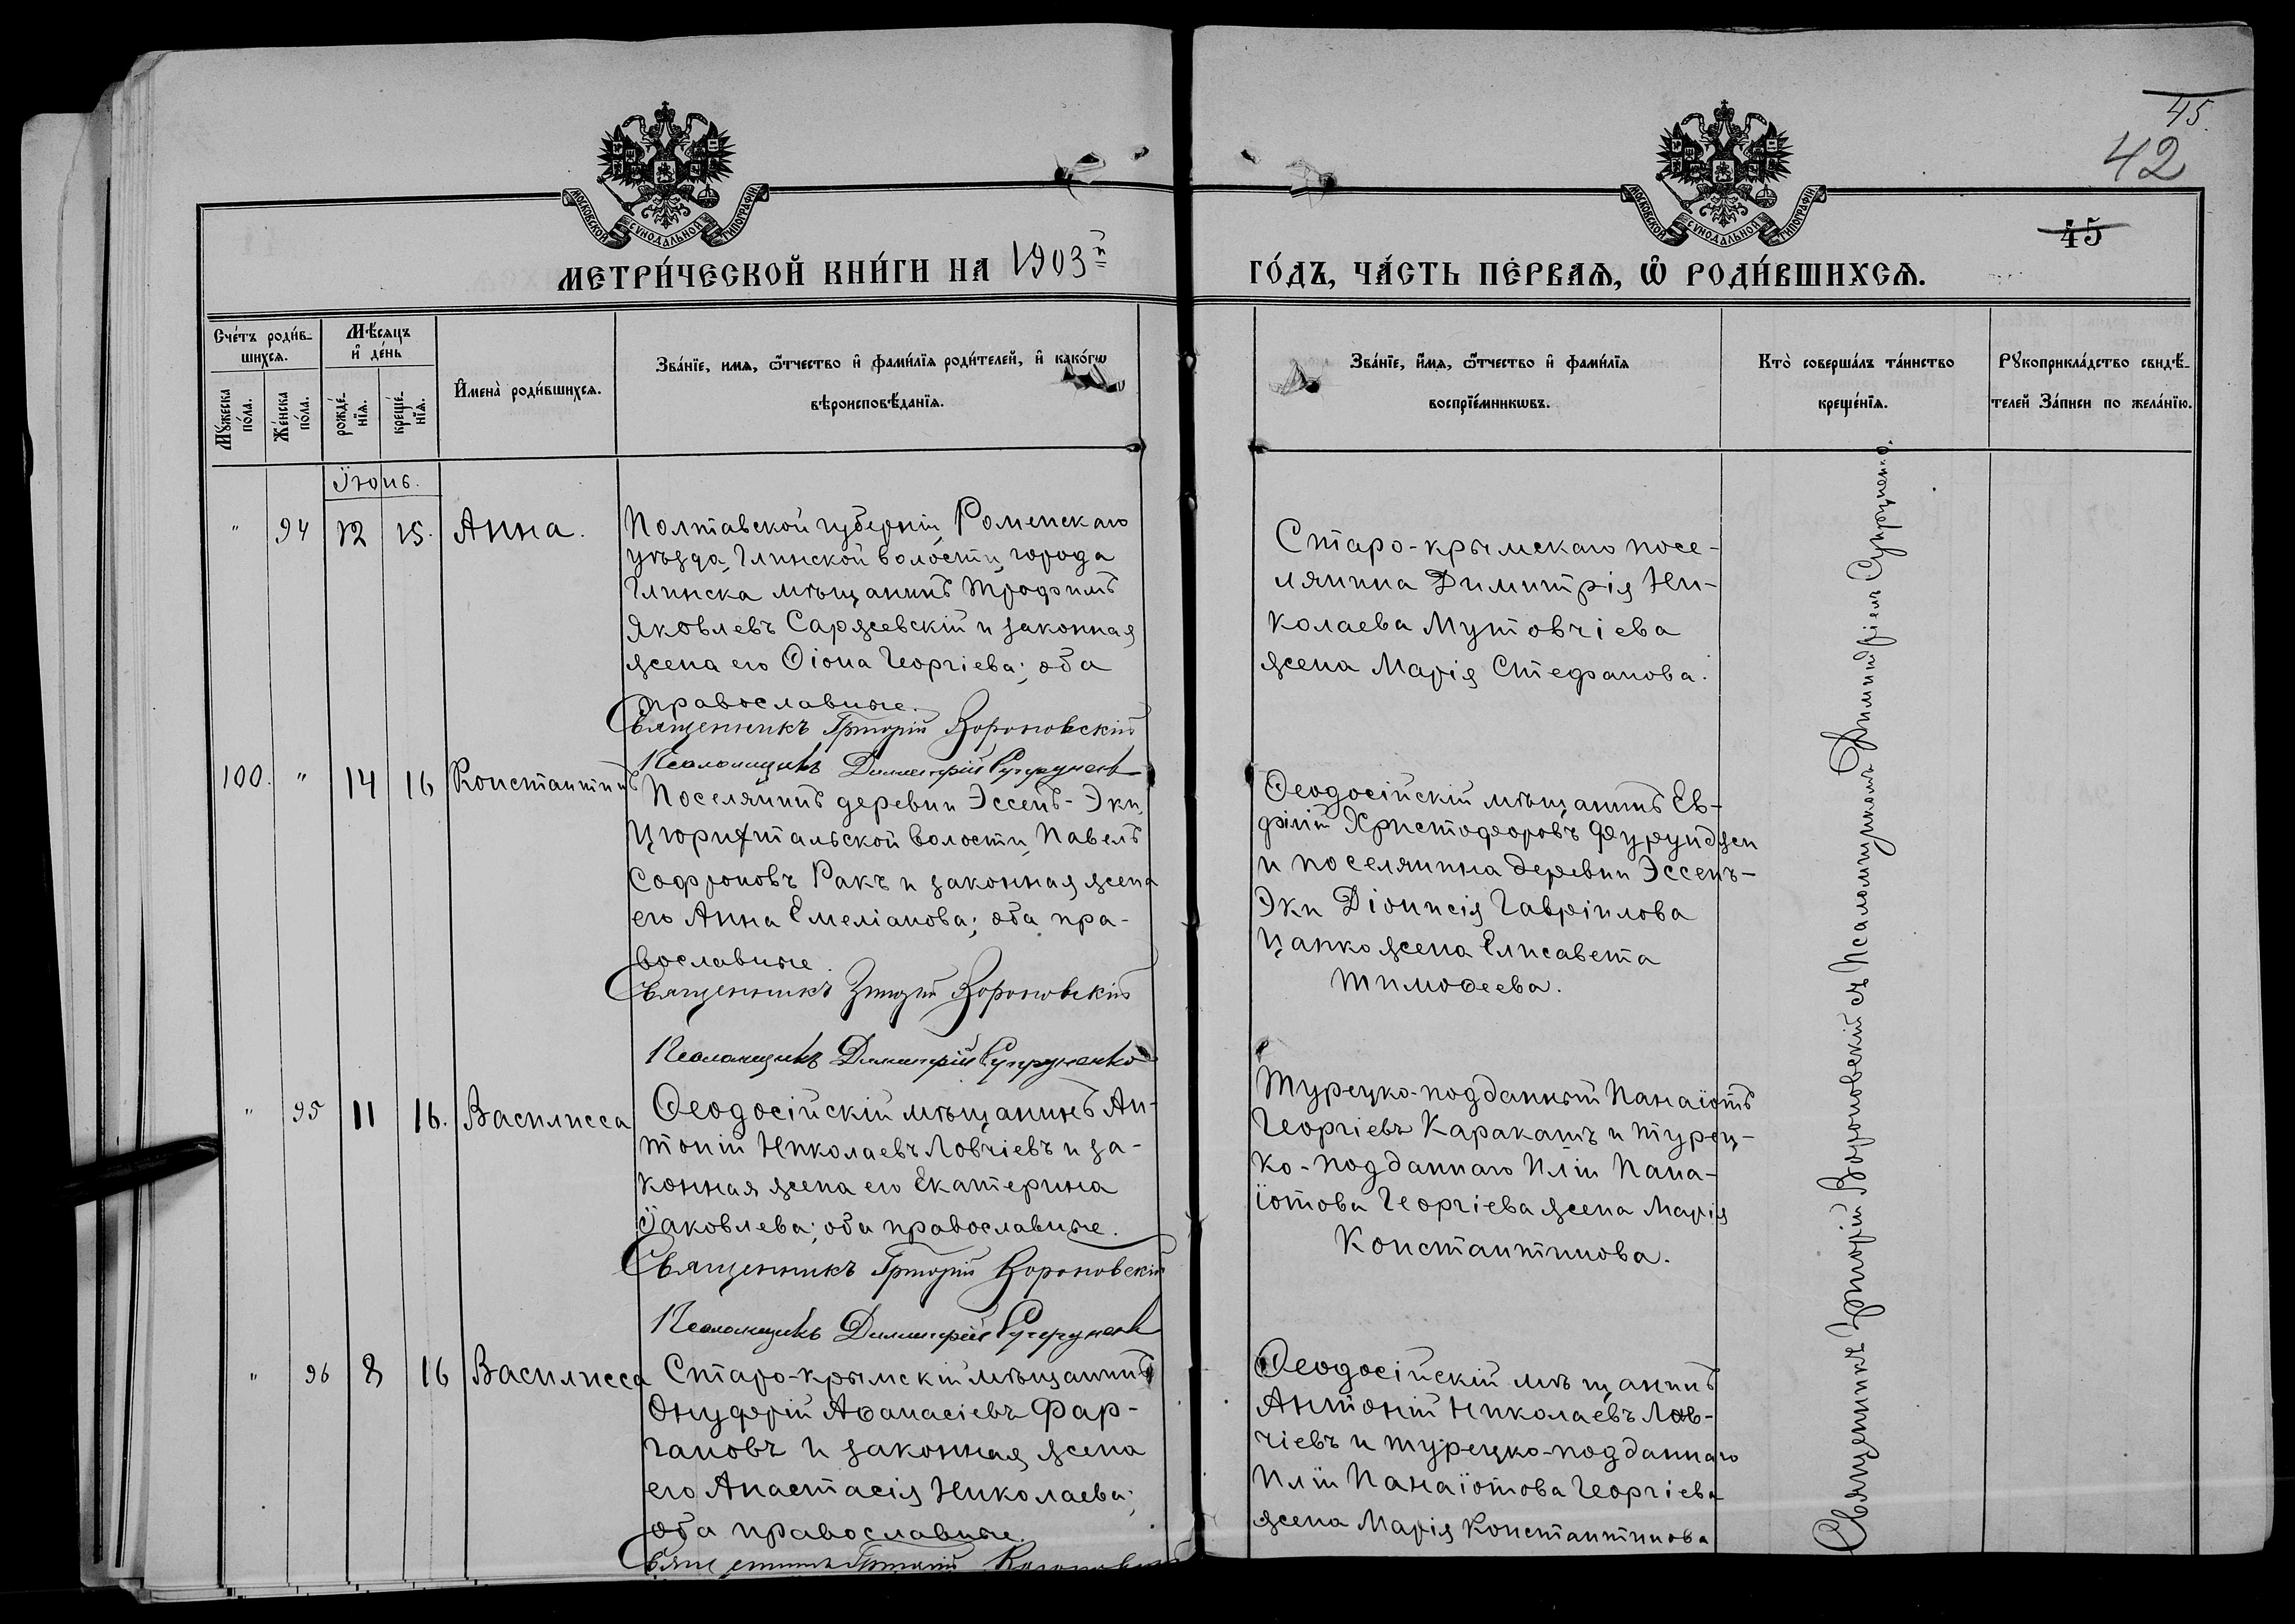 45.
42
45
МОСКОВСКОЙ СѴНОДАЛЬНОЙ ТИПОГРАФІИ
МОСКОВСКОЙ СѴНОДАЛЬНОЙ ТИПОГРАФІИ
МЕТРИ́ЧЕСКОЙ КНИ́ГИ НА 1903й
ГО́ДЪ, ЧА́СТЬ ПЕ́РВАѦ, Ѡ҆ РОДИ́ВШИХСѦ.
Сче́тъ роди́в-
шихсѧ.
Мꙋ́жеска
по́ла.
Же́нска
по́ла.
Мѣ́сѧцъ
и҆ де́нь
рожде́-
нїѧ.
креще́-
нїѧ.
И҆мена̀ роди́вшихсѧ.
Зва́нїе, имѧ, ѻ҆́тчество и҆ фами́лїѧ роди́телей, и҆ како́гѡ
вѣроисповѣ́данїѧ.
Зва́нїе, и҆́мѧ, ѻ҆́тчество и҆ фами́лїѧ
воспрїе́мникѡвъ.
Кто̀ соверша́лъ та́инство
креще́нїѧ.
Рꙋкоприкла́дство свидѣ́-
телей За́писи по жела́нїю.
Іюнь.
" 94 12 15. Анна.
Полтавской губерніи, Роменскаго
уѣзда, Глинской волости, города
Глинска мѣщанинъ Трофимъ
Яковлевъ Саржевскій и законная
жена его Ѳіона Георгіева; оба
православные.
Священникъ Григорій Вороновскій
Псаломщикъ Димитрій Супруненко
Старо-крымскаго посе-
лянина Димитрія Ни-
колаева Мутовчіева
жена Марія Стефанова.
100. " 14 16 Константинъ
Поселянинъ деревни Эссенъ-Эки,
Цюрихтальской волости, Павелъ
Софроновъ Ракъ и законная жена
его Анна Емеліанова; оба пра-
вославные.
Священникъ Григорій Вороновскій
Псаломщикъ Димитрій Супруненко
Ѳеодосійскій мѣщанинъ Ев-
фимій Христофоровъ Фурунджи
и поселянина деревни Эссенъ-
Эки Діонисія Гавріилова
Цапко жена Елисавета
Тимоѳеева.
" 95 11 16. Василисса
Ѳеодосійскій мѣщанинъ Ан-
тоній Николаевъ Ловчіевъ и за-
конная жена его Екатерина
Іаковлева; оба православные.
Священникъ Григорій Вороновскій
Псаломщикъ Димитрій Супруненко
Турецко-подданный Панаіотъ
Георгіевъ Каракашъ и турец-
ко-подданнаго Иліи Пана-
іотова Георгіева жена Марія
Константинова.
" 96 8 16 Василисса
Старо-крымскій мѣщанинъ
Онуфрій Аѳанасіевъ Фар-
гановъ и законная жена
его Анастасія Николаева;
оба православные.
Священникъ Григорій Вороновскій
Ѳеодосійскій мѣщанинъ
Антоній Николаевъ Лов-
чіевъ и турецко-подданнаго
Иліи Панаіотова Георгіева
жена Марія Константинова
Священникъ Григорій Вороновскій съ Псаломщикомъ Димитріемъ Супруненко.